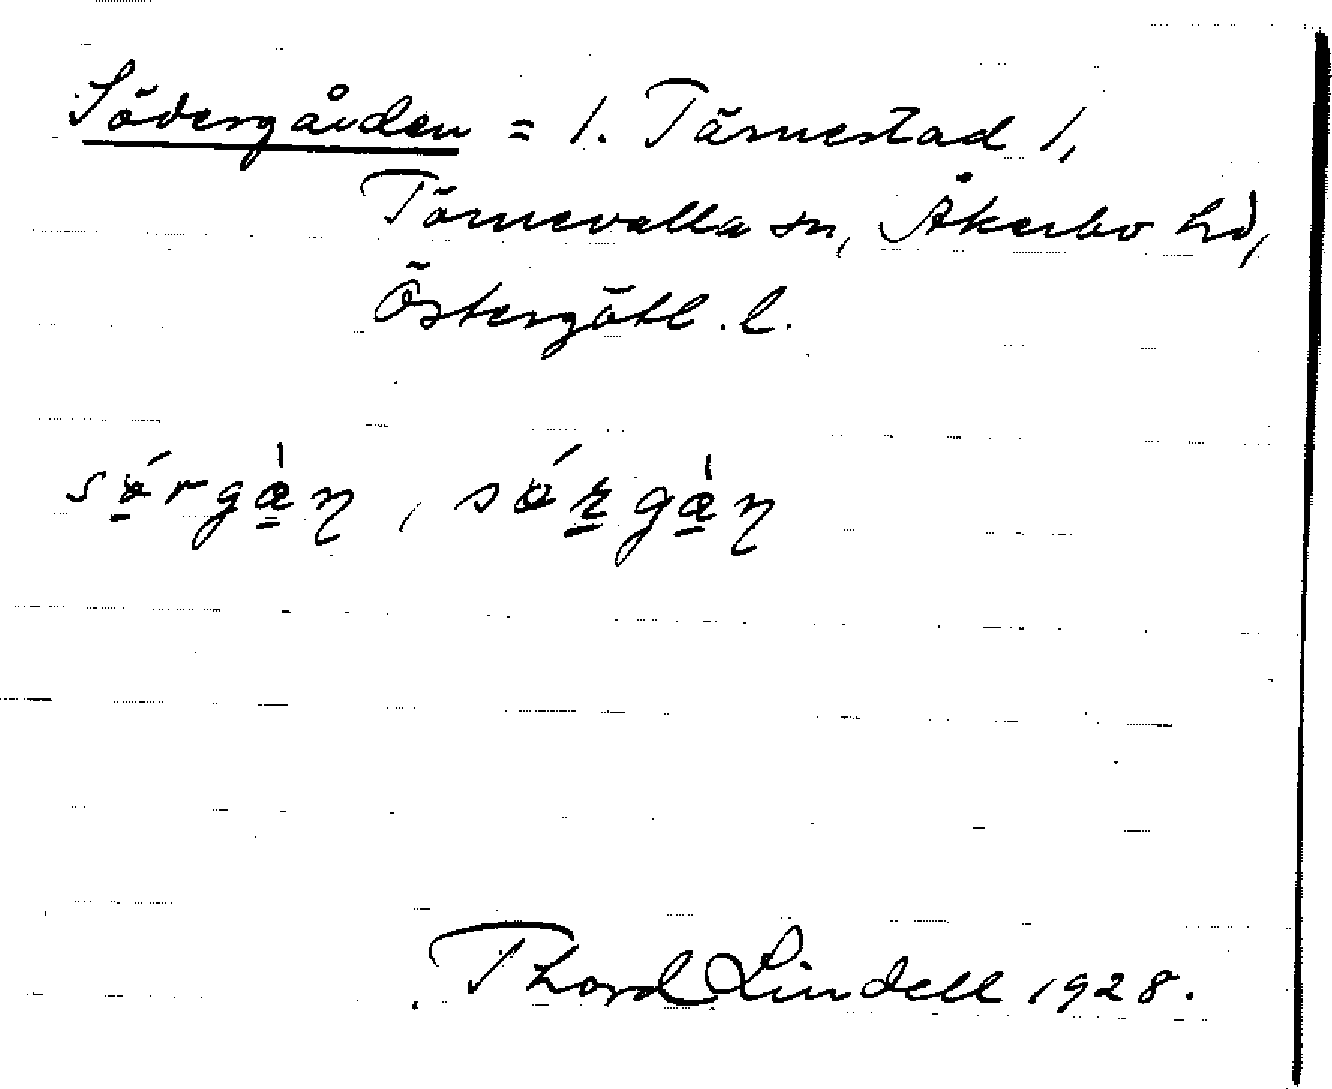 Södergården = 1. Tärnestad 1,
Törnevalla sn, Åkerbo hd,
Östergötl. l.
Thord Lindell 1928.